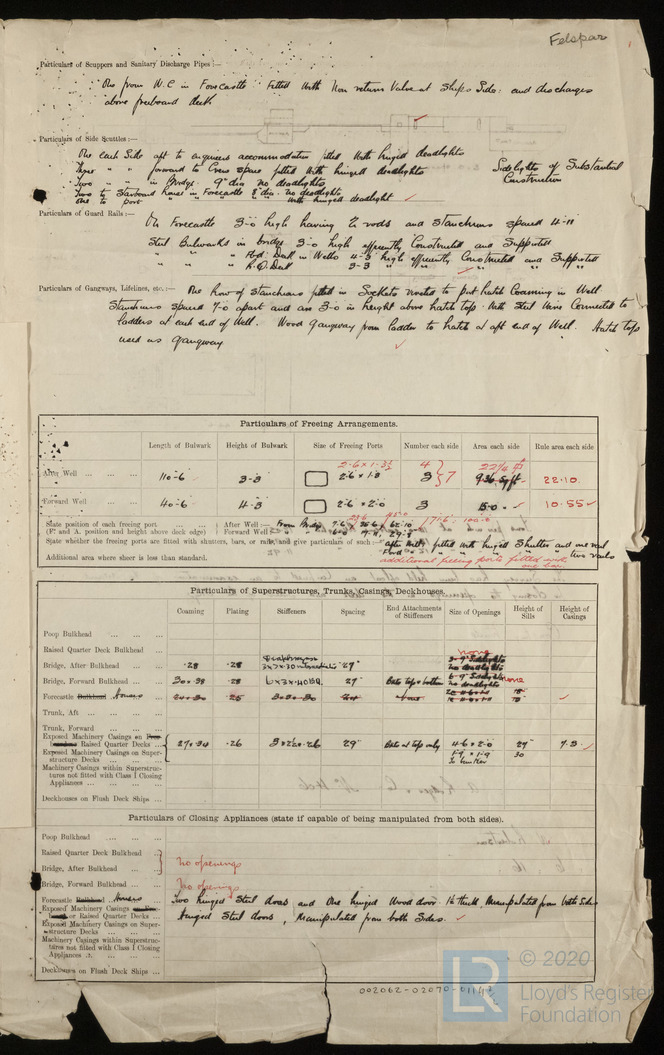 Felspar
Particulars of Scuppers and Sanitary Discharge Pipes :—
One from W.C in Forecastle Fitted with Non return Valve at Ships Side: and discharges
above freeboard deck.
Particulars of Side Scuttles:—
One each Side aft to engineers accommodation fitted with hinged deadlights
forward to Crews space fitted with hinged deadlights
Two in Bridge. 9" dia no deadlights
Two to Starboard house in Forecastle 8" dia. no deadlights
One to port with hinged deadlight ✓
Sidelights of Substantial
Construction
Particulars of Guard Rails :—
On Forecastle 3-0 high having 2 rods and Stanchions spaced 4-11
Steel Bulwarks in bridge 3-0 high efficiently Constructed and Supported
" " " Fwd. Deck in Wells 4-3 high efficiently Constructed and Supported
" " " R.Q. Deck 3-3 " " " " "
Particulars of Gangways, Lifelines, etc.:—
One Row of Stanchions fitted in Sockets riveted to port hatch Coaming in Well
Stanchions spaced 7-0 apart and are 3-0 in height above hatch top. With Steel Wire Connected to
ladders at each end of Well. Wood Gangway from ladder to hatch at aft end of Well. Hatch tops
used as gangway
Particulars of Freeing Arrangements.
Length of Bulwark Height of Bulwark Size of Freeing Ports Number each side Area each side Rule area each side
2-6 × 1-3½ 4 22¼
After Well 110-6 3-3 2-6 × 1-8 3 } 7 22.10
Forward Well 40-6 4-3 2-6 × 2-0 3 15.0 ✓ 10.55 ✓
State position of each freeing port
(F. and A. position and height above deck edge)
After Well:— From Bridge 7-6
Forward Well:—
State whether the freeing ports are fitted with shutters, bars, or rails, and give particulars of such :— After Well, fitted with hinged Shutter and one rail
Fwd " " " " " " two rails
Additional area where sheer is less than standard.
additional freeing ports fitted with
one bar.
Particulars of Superstructures, Trunks, Casings, Deckhouses.
Coaming Plating Stiffeners Spacing End Attachments of Stiffeners Size of Openings Height of Sills Height of Casings
Poop Bulkhead
Raised Quarter Deck Bulkhead none
Bridge, After Bulkhead .28 .28 29" 3-9" Sidelights no deadlights
Bridge, Forward Bulkhead 30×38 .28 6×3×.40 BA. 27" Bkts top & bottom 6-9" Sidelights no deadlights none
Forecastle Bulkhead Houses .25 3×3×.30 none 18" ✓
Trunk, Aft
Trunk, Forward
Exposed Machinery Casings on Raised Quarter Decks 27×34 .26 29" Bkts at top only 4-6 × 2-0 24 7-3 ✓
Exposed Machinery Casings on Superstructure Decks 1-9 × 1-9 30
to bunker
Machinery Casings within Superstructures not fitted with Class I Closing Appliances
Deckhouses on Flush Deck Ships
Particulars of Closing Appliances (state if capable of being manipulated from both sides).
Poop Bulkhead
Raised Quarter Deck Bulkhead
Bridge, After Bulkhead } no openings
Bridge, Forward Bulkhead no openings
Forecastle Bulkhead Houses Two hinged Steel doors and One hinged Wood door 1¾ thick Manipulated from both Sides
Exposed Machinery Casings or Raised Quarter Decks Hinged Steel doors, Manipulated from both Sides. ✓
Exposed Machinery Casings on Superstructure Decks
Machinery Casings within Superstructures not fitted with Class I Closing Appliances
Deckhouses on Flush Deck Ships
002062-02070-0114
LR
© 2020
Lloyd's Register
Foundation